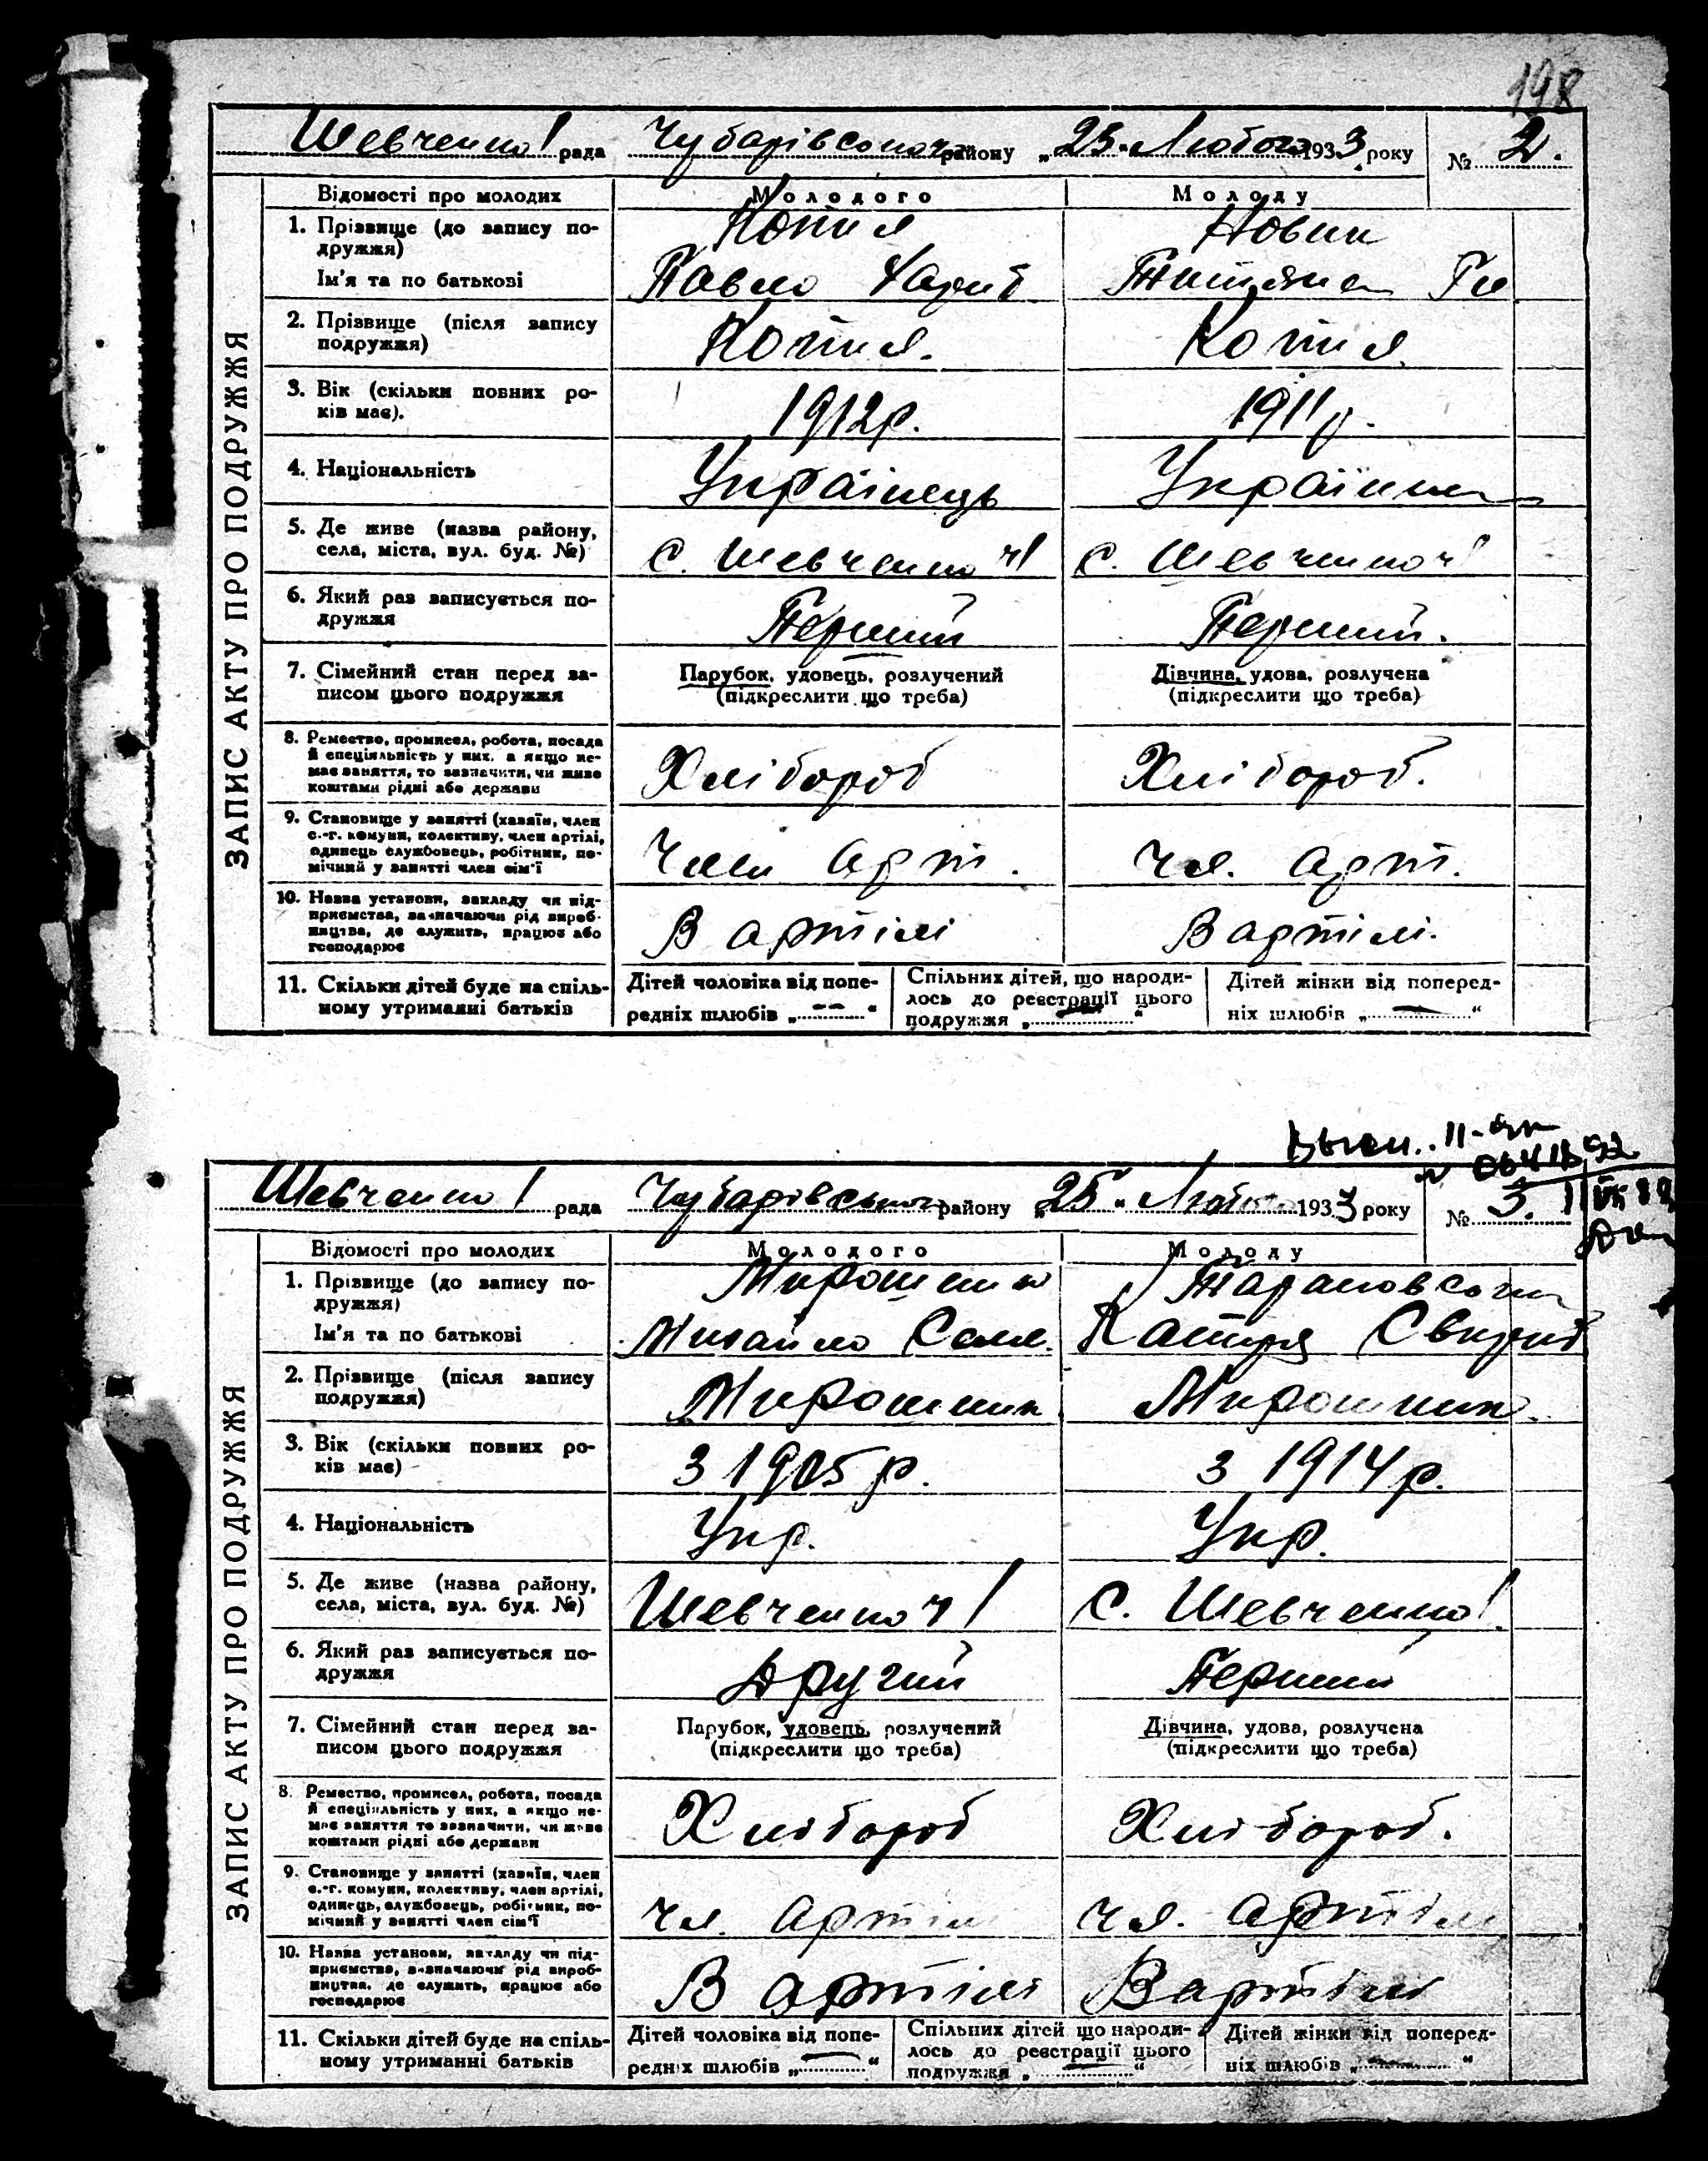 198
Шевченко I рада Чубарівського району „23" Лютого 1933 року № 2.
ЗАПИС АКТУ ПРО ПОДРУЖЖЯ
Відомості про молодих Молодого Молоду
1. Прізвище (до запису по- Копил Новик
дружжя)
Ім'я та по батькові Павло Тетяна
2. Прізвище (після запису Копил. Копил
подружжя)
3. Вік (скільки повних ро- 1912р. 1911р.
ків має).
4. Національність Українець Українка
5. Де живе (назва району, с. Шевченко ч I с. Шевченко ч I
села, міста, вул. буд. №)
6. Який раз записується по- Перший Перший.
дружжя
7. Сімейний стан перед за- Парубок, удовець, розлучений Дівчина, удова, розлучена
писом цього подружжя (підкреслити що треба) (підкреслити що треба)
8. Ремество, промисел, робота, посада Хлібороб Хлібороб.
й спеціяльність у них, а якщо не-
має заняття, то зазначити, чи живе
коштами рідні або держави
9. Становище у занятті (хазяїн, член Член арт. чл. арт.
с.-г. комуни, колективу, член артілі,
одинець службовець, робітник, по-
мічний у занятті член сім'ї
10. Назва установи, закладу чи під- В артілі В артілі.
приємства, зазначаючи рід вироб-
ництва, де служить, працює або
господарює
11. Скільки дітей буде на спіль- Дітей чоловіка від попе- Спільних дітей, що народи- Дітей жінки від поперед-
ному утриманні батьків редніх шлюбів „—" лось до реєстрації цього ніх шлюбів „—"
подружжя „—"
Шевченко I рада Чубарівського району „25" Лютого 1933 року № 3.
ЗАПИС АКТУ ПРО ПОДРУЖЖЯ
Відомості про молодих Молодого Молоду
1. Прізвище (до запису по- Мирошник Тарановська
дружжя)
Ім'я та по батькові Михайло Сам. Катря Свирид
2. Прізвище (після запису Мирошник Мирошник
подружжя)
3. Вік (скільки повних ро- з 1905 р. з 1914 р.
ків має)
4. Національність Укр. Укр.
5. Де живе (назва району, Шевченко ч I с. Шевченко I
села, міста, вул. буд. №)
6. Який раз записується по- Другий Перший
дружжя
7. Сімейний стан перед за- Парубок, удовець, розлучений Дівчина, удова, розлучена
писом цього подружжя (підкреслити що треба) (підкреслити що треба)
8. Ремество, промисел, робота, посада Хлібороб Хлібороб.
й спеціяльність у них, а якщо не-
має заняття то зазначити, чи живе
коштами рідні або держави
9. Становище у занятті (хазяїн, член чл. артілі чл. артілі
с.-г. комуни, колективу, член артілі,
одинець, службовець, робітник, по-
мічний у занятті член сім'ї
10. Назва установи, закладу чи під- В артілі В артілі
приємства, зазначаючи рід вироб-
ництва, де служить, працює або
господарює
11. Скільки дітей буде на спіль- Дітей чоловіка від попе- Спільних дітей що народи- Дітей жінки від поперед-
ному утриманні батьків редніх шлюбів „—" лось до реєстрації цього ніх шлюбів „—"
подружжя „—"